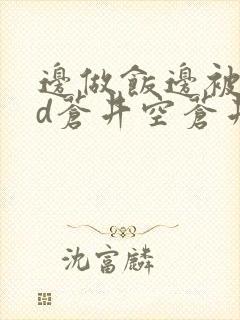 邊做飯邊被
d蒼井空蒼井
沈富麟